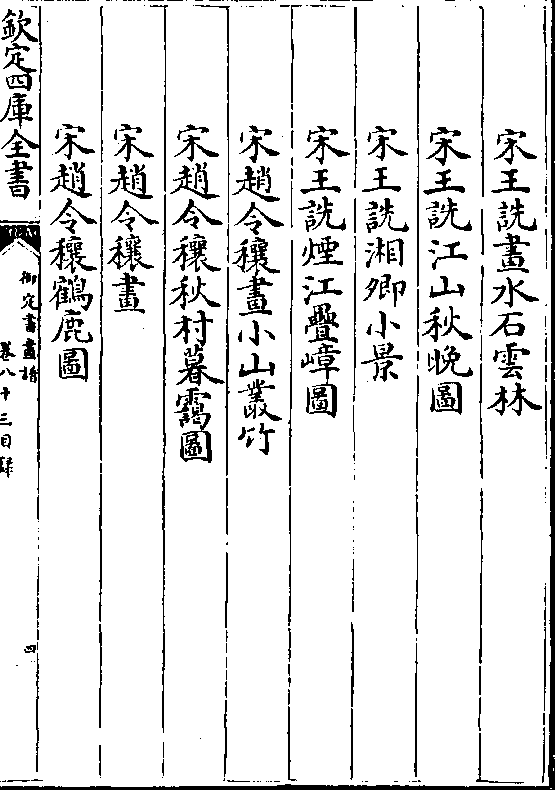 宋王詵畫水石雲林
宋王詵江山秋晚圖
宋王詵湘鄉小景
宋王詵煙江疊嶂圖
宋趙令穰畫小山叢竹
宋趙令穰秋村暮靄圖
宋趙令穰畫
宋趙令穰鶴鹿圖
欽定四庫全書
御定書畫譜
卷八十三目録
四